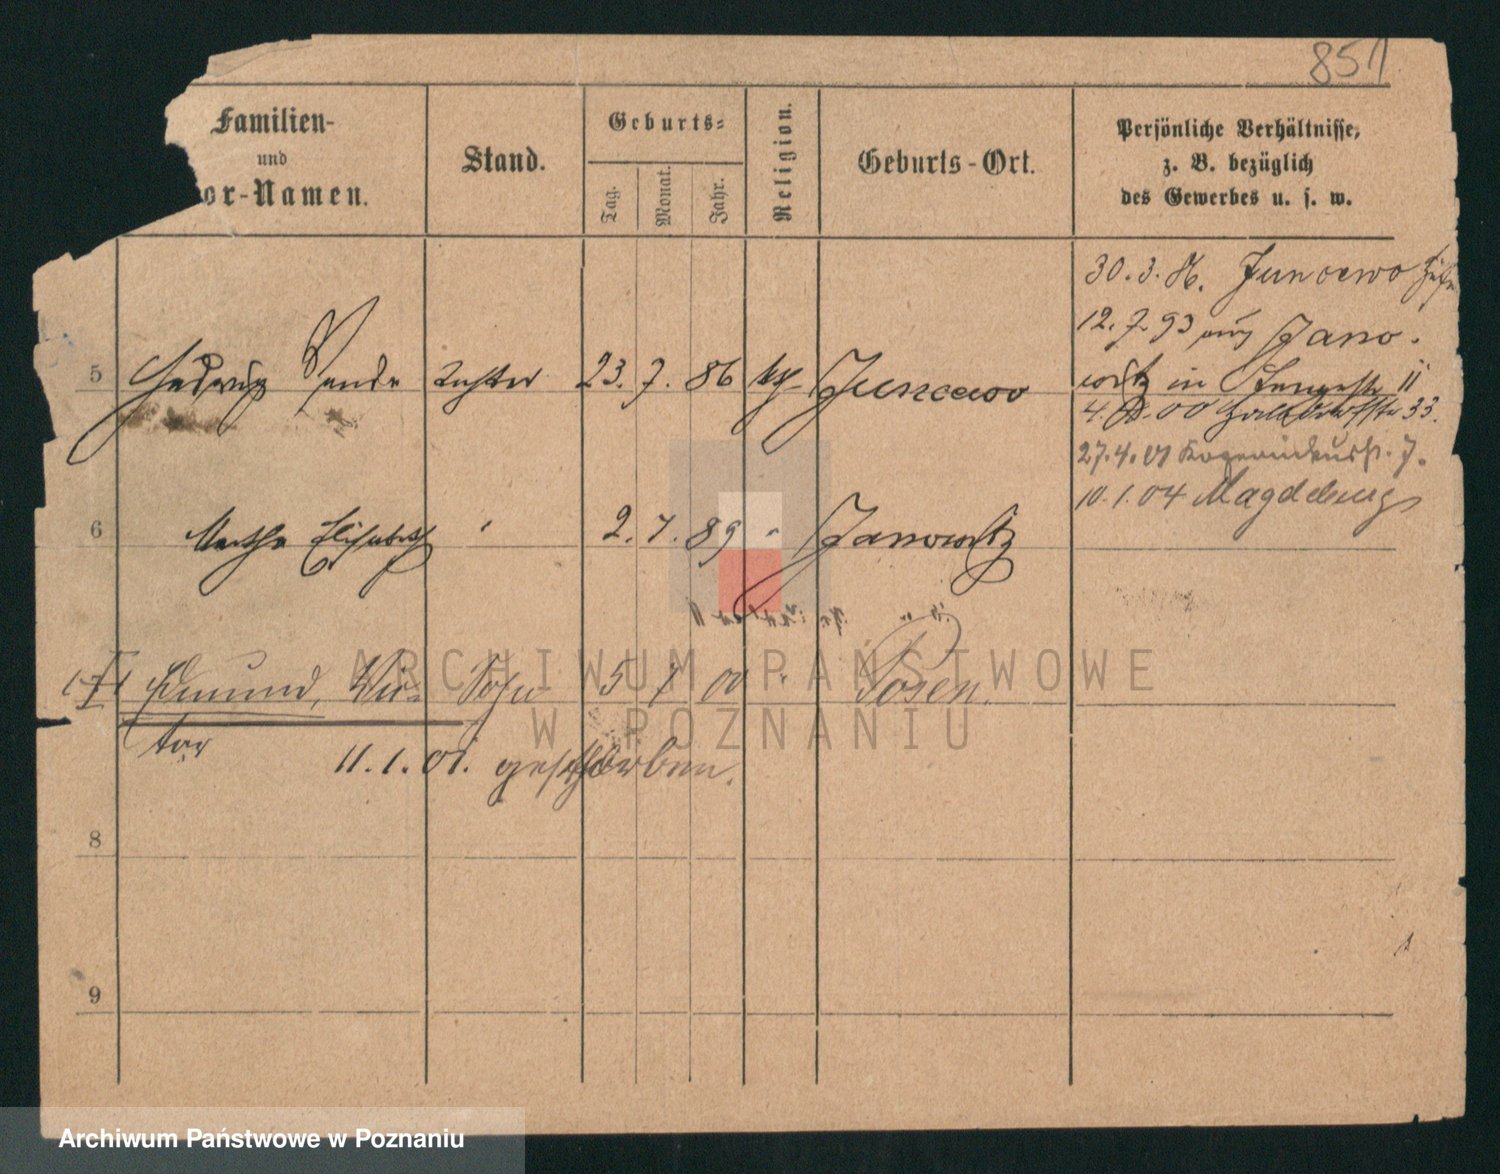 851
Familien-
und
or-Namen.
Stand.
Geburts-
Tag.
Monat.
Jahr.
Religion.
Geburts-Ort.
Persönliche Verhältnisse,
z. B. bezüglich
des Gewerbes u. s. w.
30. 3. 86. Juncewo
12. 7. 93 aus Jano-
witz in 11
4. 00 33.
27. 4. 01 7.
10. 1. 04 Magdeburg
5 Hedwig Tochter 23. 7. 86 kth Juncewo
6 Martha Elisabeth 2. 7. 89 " Janowitz
7 Edmund, Vic- Sohn 5 1 00 " Posen.
tor
11. 1. 01. gestorben.
8
9
ARCHIWUM PAŃSTWOWE
W POZNANIU
Archiwum Państwowe w Poznaniu